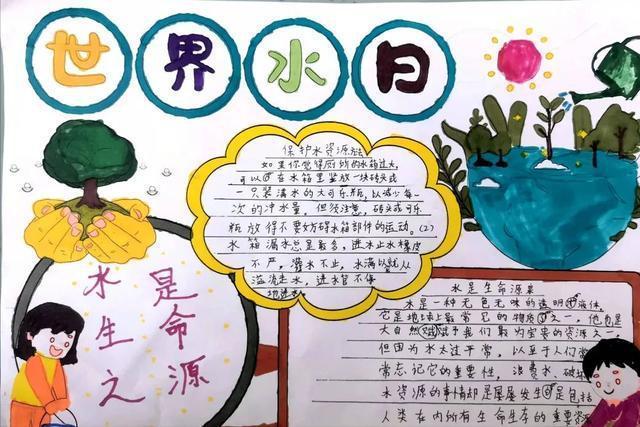 世界水日
保护水资源方法
如果你觉得厕所的水箱过大,
可以在水箱里竖放一块砖头或
一只装满水的大可乐瓶,以减少每一
次的冲水量,但须注意,砖头或可乐
瓶放得不要妨碍水箱部件的运动。(2)
水箱漏水总是最多,进水止水橡皮
不严,灌水不止,水满以就从
溢流走水,进水管不停
地进水
水是生命之源
水是生命源泉
水是一种无色无味的透明液体,
它是地球上最常见的物质之一,他也是
大自然赋予我们最为宝贵的资源之一
但因为水太过平常,以至于人们常
常忘记它的重要性,浪费水、破坏
水资源的事情却是屡屡发生是包括
人类在内所有生命生存的重要资源